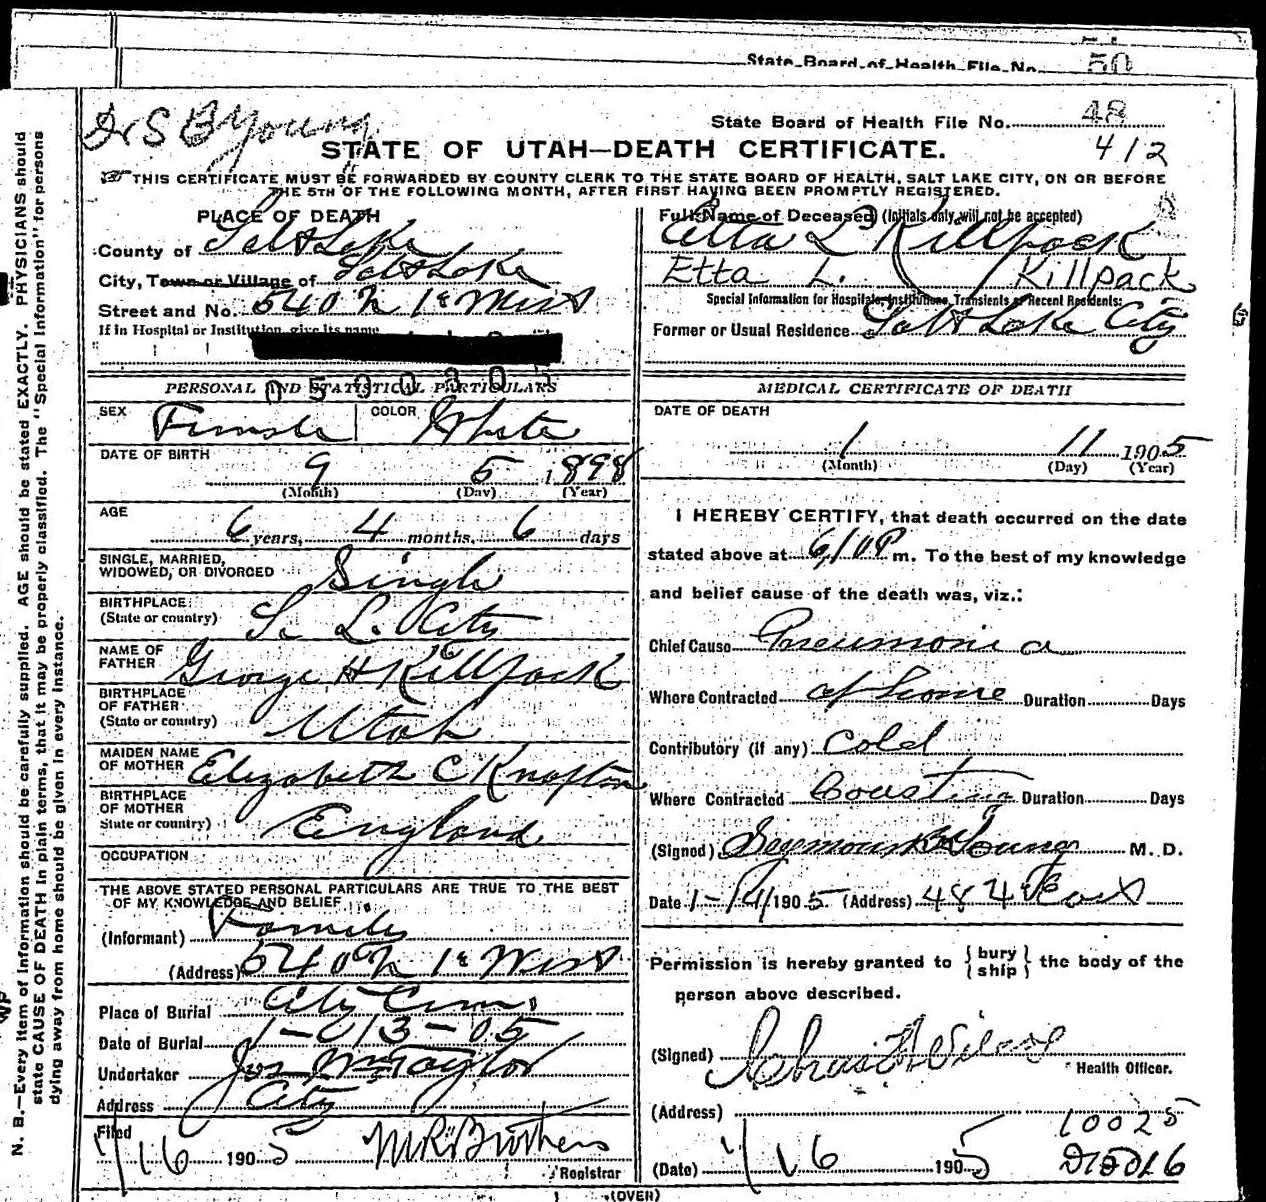 State Board of Health File No. 50
Dr S B Young
State Board of Health File No. 48
412
STATE OF UTAH—DEATH CERTIFICATE.
THIS CERTIFICATE MUST BE FORWARDED BY COUNTY CLERK TO THE STATE BOARD OF HEALTH, SALT LAKE CITY, ON OR BEFORE
THE 5TH OF THE FOLLOWING MONTH, AFTER FIRST HAVING BEEN PROMPTLY REGISTERED.
N. B.—Every item of information should be carefully supplied. AGE should be stated EXACTLY. PHYSICIANS should
state CAUSE OF DEATH in plain terms, that it may be properly classified. The "Special Information" for persons
dying away from home should be given in every instance.
PLACE OF DEATH
County of Salt Lake
City, Town or Village of Salt Lake
Street and No. 540 N 1st West
If in Hospital or Institution, give its name
0590305
PERSONAL AND STATISTICAL PARTICULARS
SEX Female COLOR White
DATE OF BIRTH
9 5 1898
(Month) (Day) (Year)
AGE
6 years, 4 months, 6 days
SINGLE, MARRIED,
WIDOWED, OR DIVORCED Single
BIRTHPLACE
(State or country) S. L. City
NAME OF
FATHER George H Killpack
BIRTHPLACE
OF FATHER
(State or country) Utah
MAIDEN NAME
OF MOTHER Elizabeth C Knapton
BIRTHPLACE
OF MOTHER
State or country) England
OCCUPATION
THE ABOVE STATED PERSONAL PARTICULARS ARE TRUE TO THE BEST
OF MY KNOWLEDGE AND BELIEF
(Informant) Family
(Address) 540 N 1st West
Place of Burial City Cem
Date of Burial 1-13-05
Undertaker Jos Wm Taylor
Address City
Filed
1/16 1905 Brothers
Registrar
Full Name of Deceased (Initials only will not be accepted)
Etta L Killpack
Etta L. Killpack
Special Information for Hospitals, Institutions, Transients or Recent Residents:
Former or Usual Residence Salt Lake City
MEDICAL CERTIFICATE OF DEATH
DATE OF DEATH
1 11 1905
(Month) (Day) (Year)
I HEREBY CERTIFY, that death occurred on the date
stated above at 6/10 P m. To the best of my knowledge
and belief cause of the death was, viz.:
Chief Cause Pneumonia
Where Contracted at home Duration Days
Contributory (if any) Cold
Where Contracted Duration Days
(Signed) Seymour B Young M. D.
Date 1-14 1905 (Address) 48 4th East
Permission is hereby granted to {bury
ship} the body of the
person above described.
(Signed)
Health Officer.
(Address)
10025
(Date) 1/16 1905
(OVER)